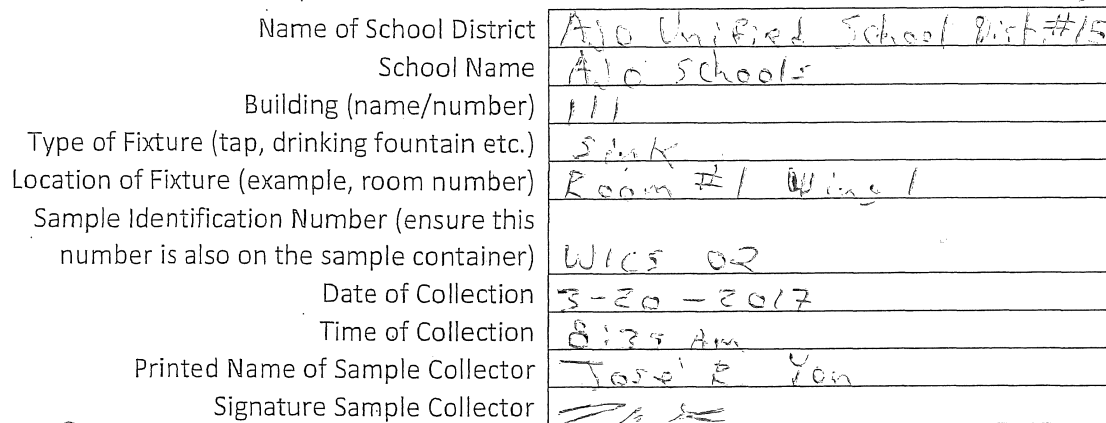 Name of School District Ajo Unified School Dist. #15
School Name Ajo Schools
Building (name/number) 111
Type of Fixture (tap, drinking fountain etc.) Sink
Location of Fixture (example, room number) Room #1 Wing 1
Sample Identification Number (ensure this
number is also on the sample container) W1CS 02
Date of Collection 3-20-2017
Time of Collection 8:35 Am
Printed Name of Sample Collector Jose R Yon
Signature Sample Collector